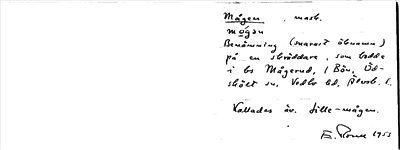 Mågen, mask.
mågən
Benämning (snarast öknamn)
på en skräddare, som bodde
i bs Mågerud, i Bön, Öd-
skölt sn. Vedbo hd, Älvsb. l.
Kallades äv. Lille-mågen.
1953